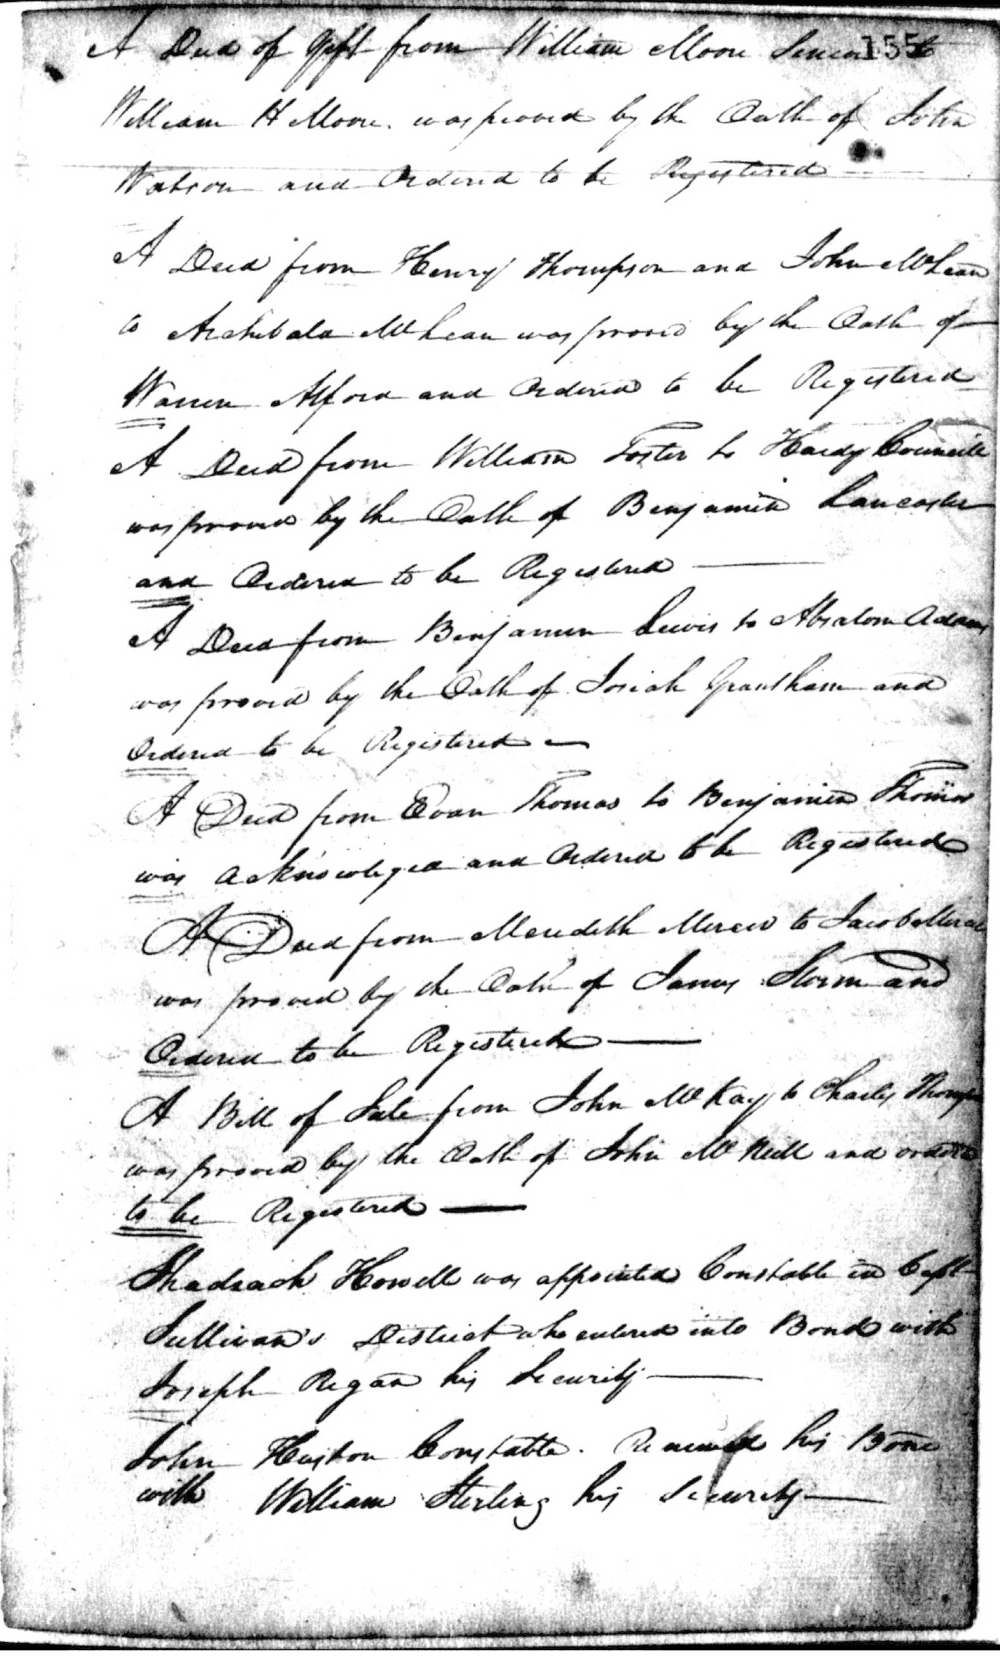 155
A Deed of Gift from William Moore Senior to
William H Moore. was proved by the Oath of John
Watson and Ordered to be Registered
A Deed from Henry Thompson and John McLean
to Archibald McLean was proved by the Oath of
Warren Alford and Ordered to be Registered
A Deed from William Foster to Hardy Councill
was proved by the Oath of Benjamin Lancaster
and Ordered to be Registered
A Deed from Benjamin Lewis to Absalom Adams
was proved by the Oath of Josiah Grantham and
Ordered to be Registered
A Deed from Evan Thomas to Benjamin Thomas
was acknowleged and Ordered to be Registered
A Deed from Meredith Mercer to Jacob Mercer
was proved by the Oath of James Storm and
Ordered to be Registered
A Bill of Sale from John McKay to Charles Thompson
was proved by the Oath of John McNeill and ordered
to be Registered
Shadrach Howell was appointed Constable in Capt
Sullivan's District who entered into Bond with
Joseph Regan his Security
John Huston Constable. Renewed his Bond
with William Sterling his Security